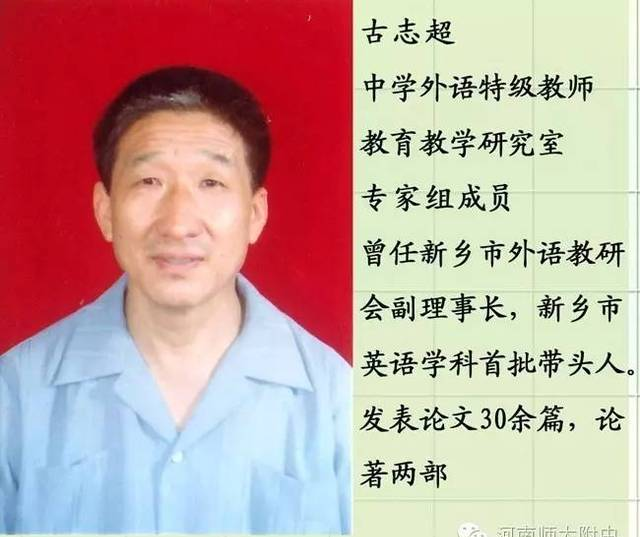 古志超
中学外语特级教师
教育教学研究室
专家组成员
曾任新乡市外语教研
会副理事长，新乡市
英语学科首批带头人。
发表论文30余篇，论
著两部
河南师大附中